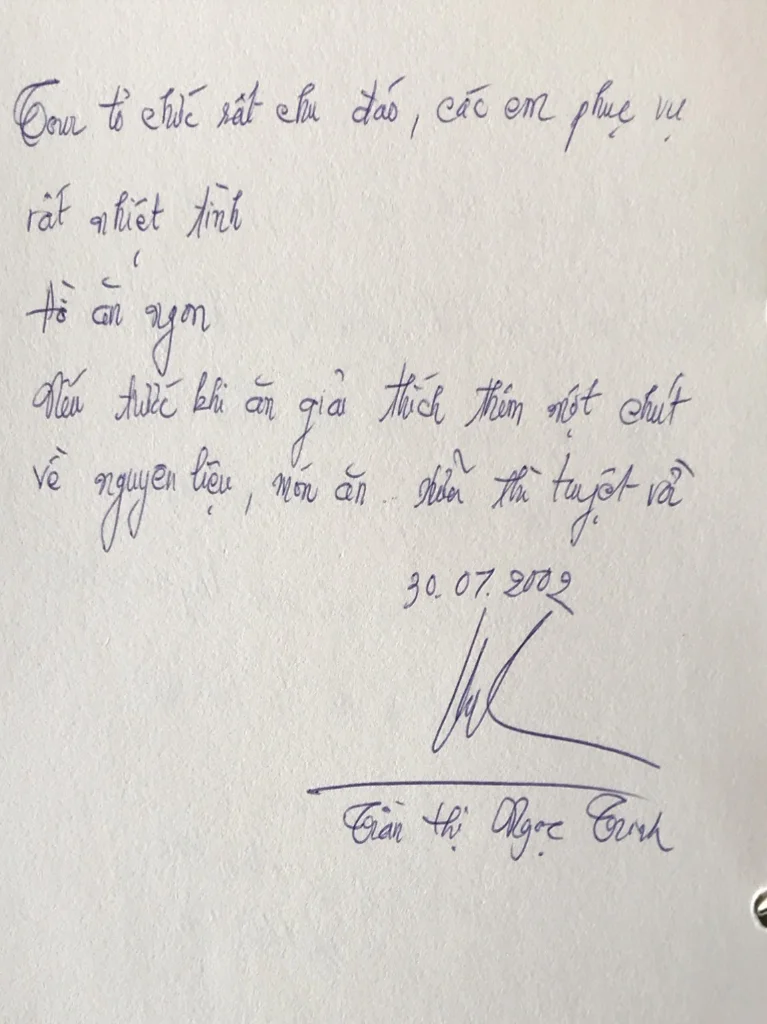 Tour tổ chức rất chu đáo, các em phục vụ
rất nhiệt tình
Đồ ăn ngon
Nếu trước khi ăn giải thích thêm một chút
về nguyên liệu, món ăn .. nữa thì tuyệt vời
30.07.2002
Trần thị Ngọc Trinh